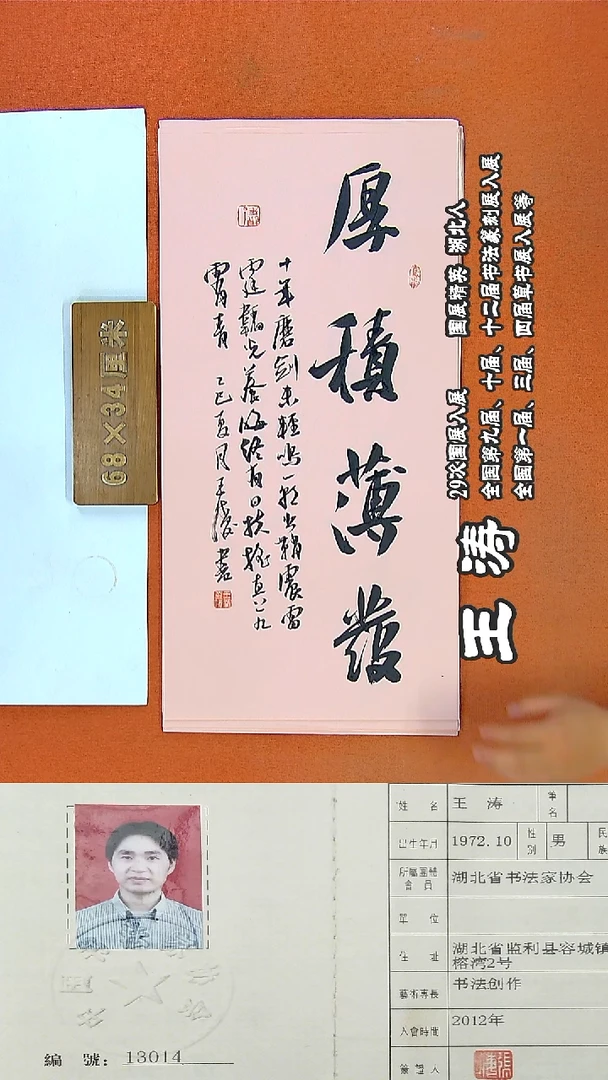 厚積薄發
十年磨劍未輕鳴一朝出鞘震雷
霆韜光養晦終有日扶摇直上九
霄青 乙巳夏月王涛書
68×34厘米
王涛
29次国展入展 国展精英 湖北人
全国第九届、十届、十二届书法篆刻展入展
全国第一届、三届、四届草书展入展等
編 號：13014
姓 名 王 涛 筆名
出生年月 1972.10 性别 男 民族
所屬團體會員 湖北省书法家协会
單 位
住 址 湖北省监利县容城镇
榕湾2号
藝術專長 书法创作
入會時間 2012年
簽證人